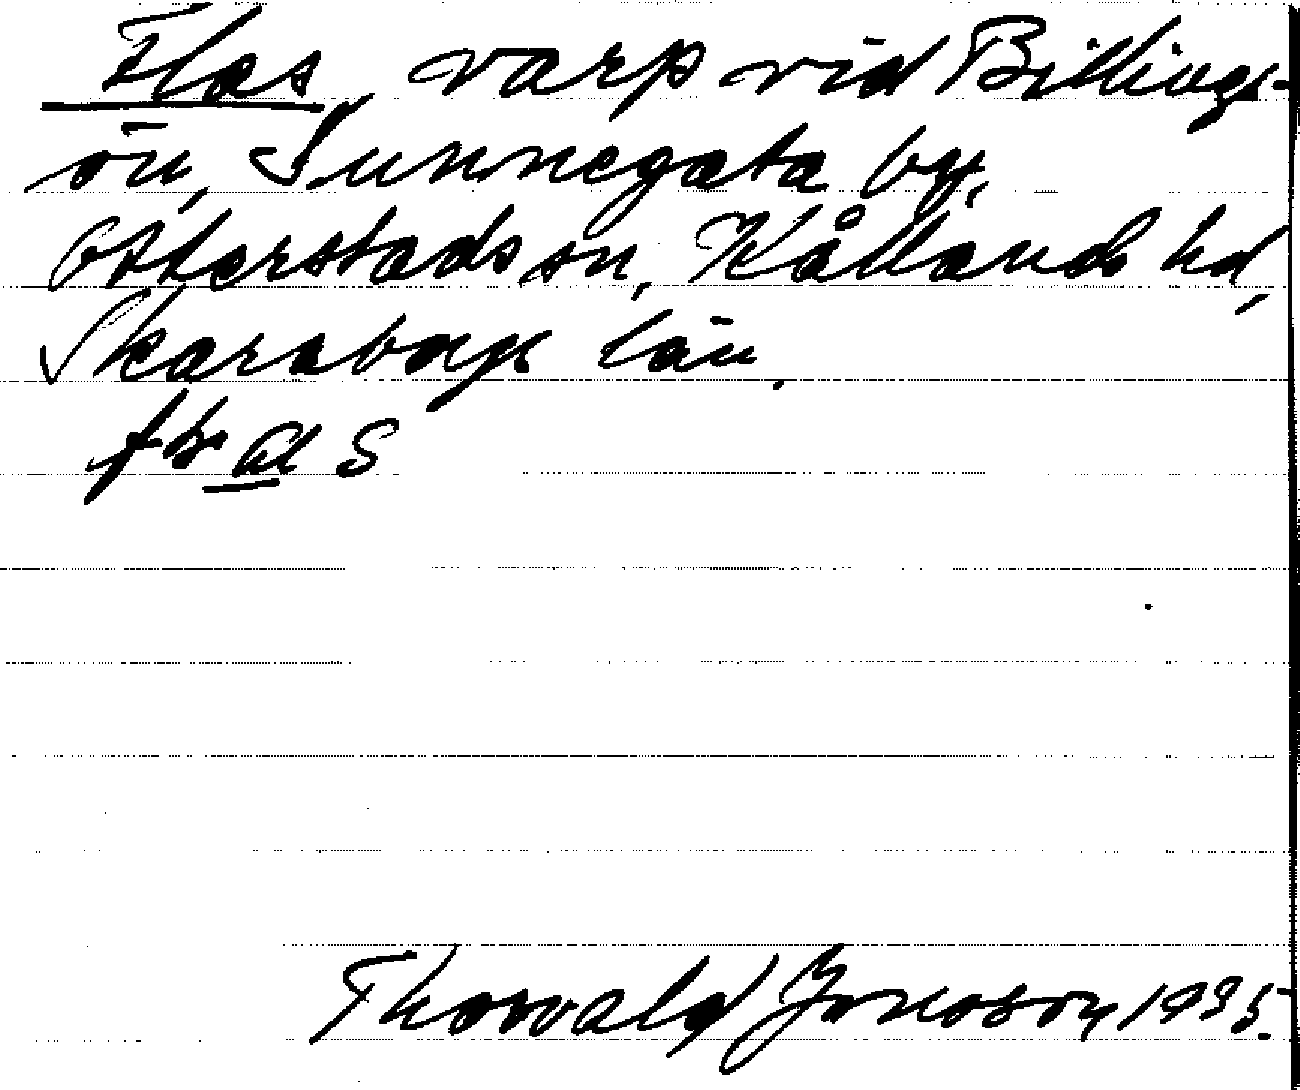 Flas, varp vid Billings-
ön, Sunnegata by,
Otterstads sn, Kållands hd,
Skaraborgs län.
Thorvald Jonsson 1935.